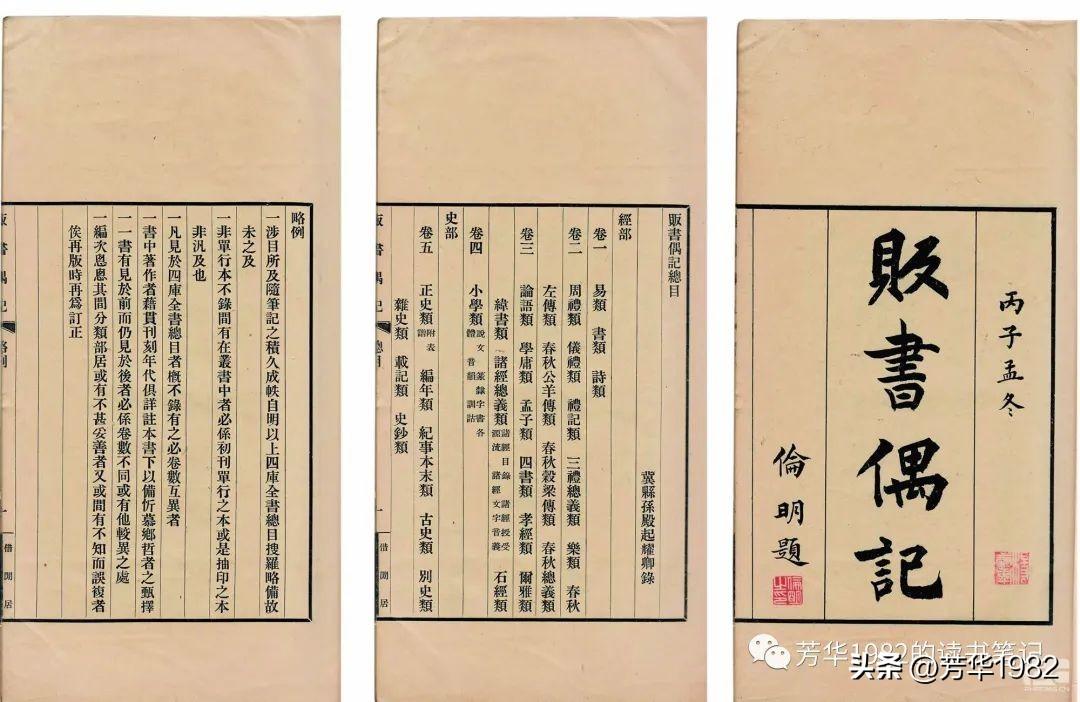 丙子孟冬
販書偶記
倫明題
販書偶記總目
冀縣孫殿起耀卿錄
經部
卷一 易類 書類 詩類
卷二 周禮類 儀禮類 禮記類 三禮總義類 樂類 春秋
左傳類 春秋公羊傳類 春秋穀梁傳類 春秋總義類
卷三 論語類 學庸類 孟子類 四書類 孝經類 爾雅類
緯書類 諸經總義類 諸經目錄 諸經授受源流 諸經文字音義 石經類
卷四 小學類 說文 篆隸字書各體 音韻 訓詁
史部
卷五 正史類 附表譜 編年類 紀事本末類 古史類 別史類
雜史類 載記類 史鈔類
販書偶記 總目 一 借閒居
略例
一涉目所及隨筆記之積久成帙自明以上四庫全書總目搜羅略備故
未之及
一非單行本不錄間有在叢書中者必係初刊單行之本或是抽印之本
非汎及也
一凡見於四庫全書總目者概不錄有之必卷數互異者
一書中著作者藉貫刊刻年代俱詳註本書下以備忻慕鄉哲者之甄擇
一一書有見於前而仍見於後者必係卷數不同或有他較異之處
一編次悤悤其間分類部居或有不甚妥善者又或間有不知而誤複者
俟再版時再爲訂正
販書偶記 略例 一 借閒居
芳华1982的读书笔记
头条 @芳华1982